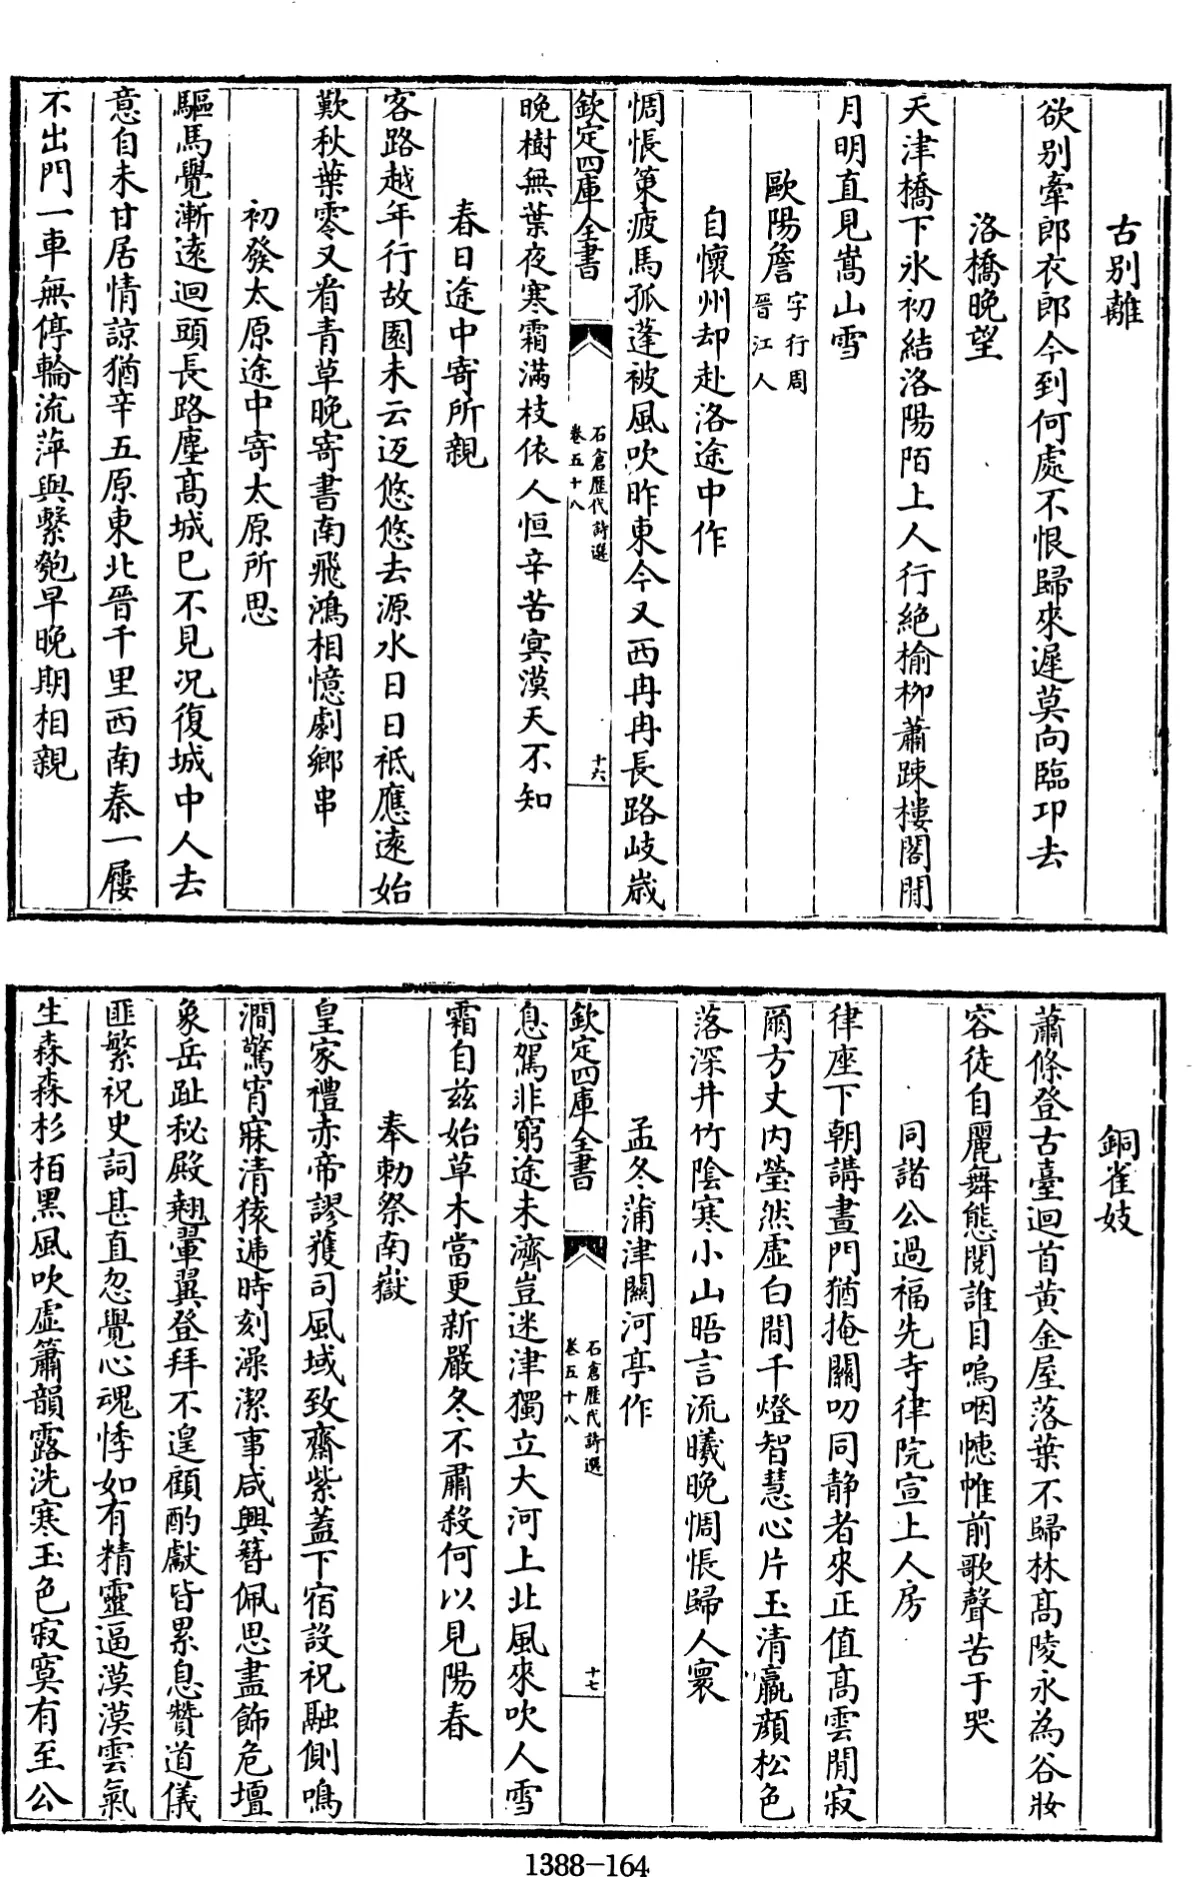 古別離
欲別牽郎衣郎今到何處不恨歸來遲莫向臨卭去
洛橋晚望
天津橋下氷初結洛陽陌上人行絶榆栁蕭踈樓閣閒
月明直見嵩山雪
歐陽詹字行周晉江人
自懷州却赴洛途中作
惆悵策疲馬孤蓬被風吹昨東今又西冉冉長路岐歳
欽定四庫全書
石倉歷代詩選
卷五十八
十六
晚樹無葉夜寒霜滿枝依人恒辛苦寞漠天不知
春日途中寄所親
客路越年行故園未云返悠悠去源水日日祗應遠始
歎秋葉零又看青草晚寄書南飛鴻相憶劇鄉串
初發太原途中寄太原所思
驅馬覺漸遠迴頭長路塵髙城已不見况復城中人去
意自未甘居情諒猶辛五原東北晉千里西南秦一屨
不出門一車無停輪流萍與繫匏早晚期相親
銅雀妓
蕭條登古臺迴首黄金屋落葉不歸林髙陵永為谷妝
容徒自麗舞態閱誰目嗚咽幒帷前歌聲苦于哭
同諸公過福先寺律院宣上人房
律座下朝講晝門猶掩關叨同静者來正值髙雲閒寂
爾方丈内瑩然虚白間千燈智慧心片玉清羸顔松色
落深井竹陰寒小山晤言流曦晚惆悵歸人寰
孟冬蒲津關河亭作
欽定四庫全書
石倉歷代詩選
卷五十八
十七
息駕非窮途未濟豈迷津獨立大河上北風來吹人雪
霜自兹始草木當更新嚴冬不肅殺何以見陽春
奉勅祭南嶽
皇家禮赤帝謬獲司風域致齋紫蓋下宿設祝融側鳴
澗驚宵寐清猿遞時刻澡潔事咸興簪佩思盡飾危壇
象岳趾秘殿翹翬翼登拜不遑顧酌獻皆累息贊道儀
匪繁祝史詞甚直忽覺心魂悸如有精靈逼漠漠雲氣
生森森杉栢黑風吹虚簫韻露洗寒玉色寂寞有至公
1388-164